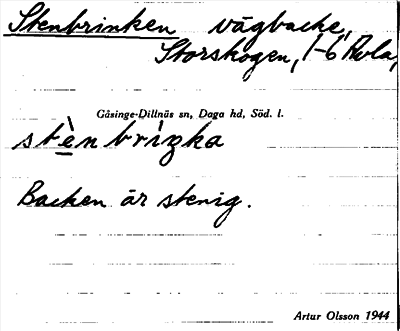 Stenbrinken vägbacke,
Storskogen, 1-6 Rula,
Gåsinge-Dillnäs sn, Daga hd, Söd. l.
stè̱nbrìŋka
Backen är stenig.
Artur Olsson 1944